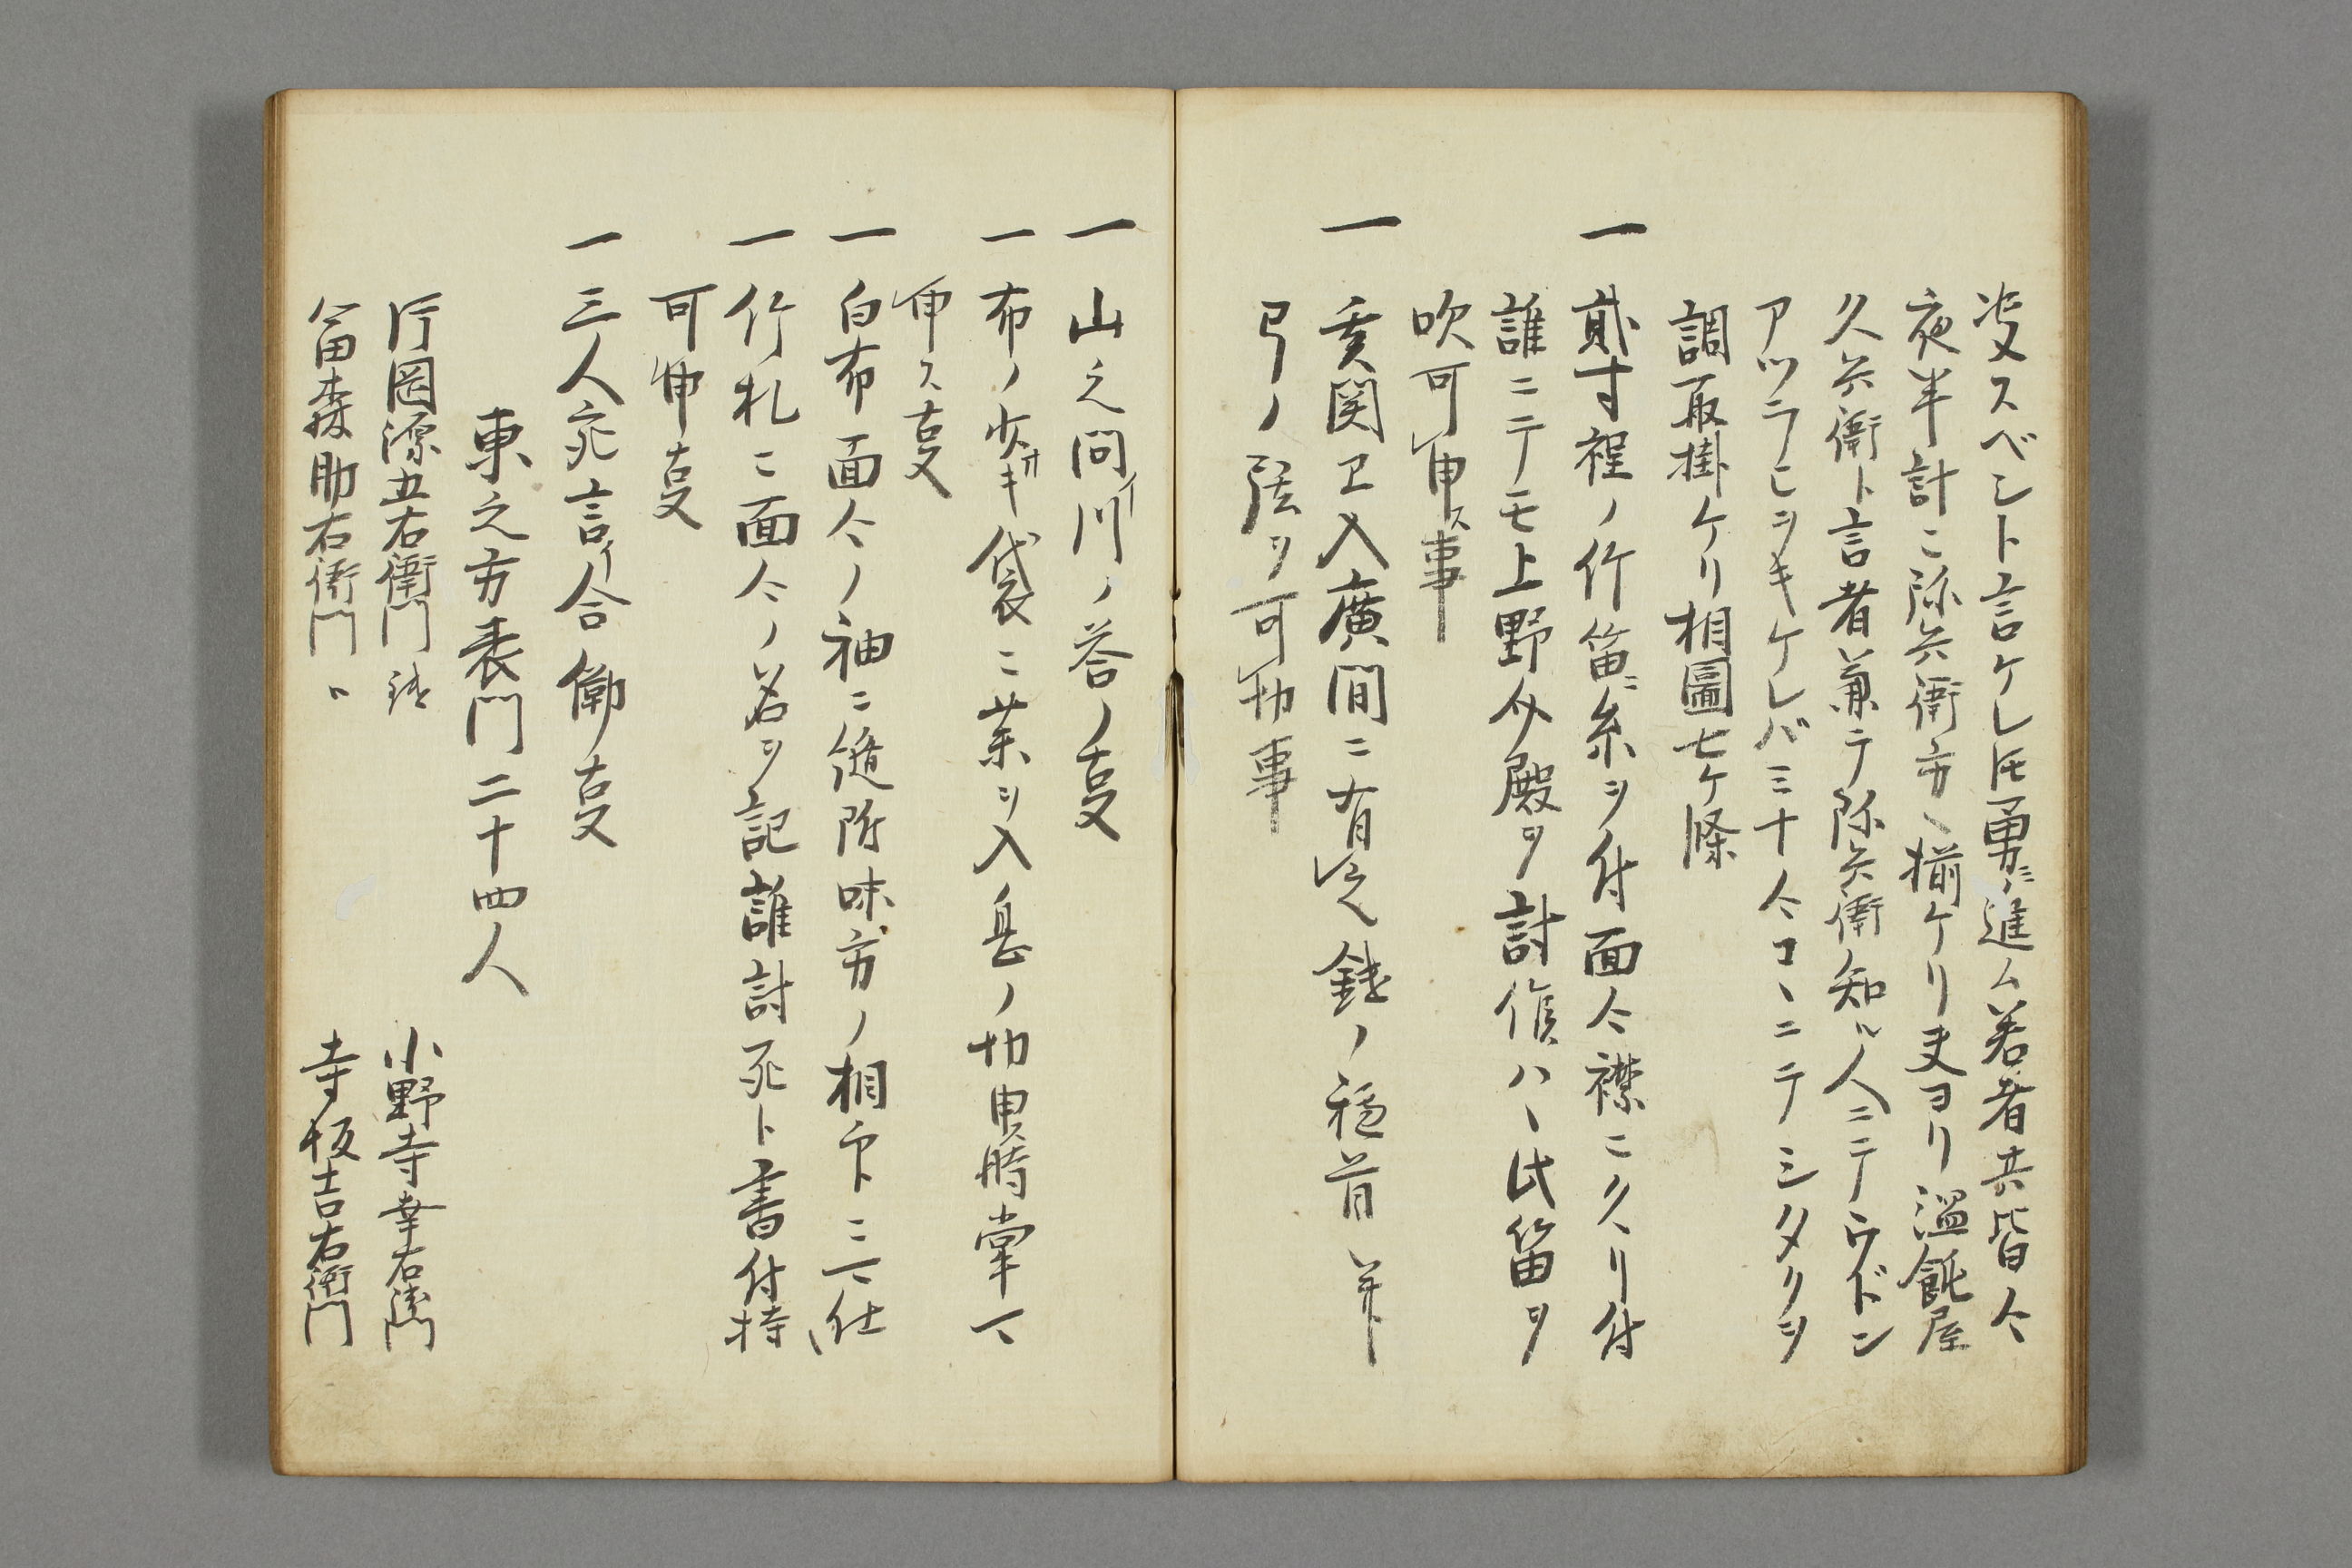 スベシト言ケレ𪜈勇ニ進ム若者共皆々
夜半計ニ弥兵衛方へ揃ケリ夫ヨリ温飩屋
久兵衛ト言者兼テ弥兵衛知ル人ニテウドン
アツラヒヲキケレバミナ々コヽニテシタクヲ
調取掛ケリ相圖七ケ條
一 貳寸程ノ竹笛ニ糸ヲ付面々襟ニクヽリ付
誰ニテモ上野介殿ヲ討候ハヽ此笛ヲ
吹可申ス事
一 玄関ヱ入廣間ニ有之鎗ノ穂首并ト
弓ノ弦ヲ可切事
一 山之問イ川ノ答ノ事
一 布ノ少サキ袋ニ薬ヲ入息ノ切申時掌可
申ス事
一 白布面々ノ袖ニ縫附味方ノ相印ニ可仕
一 竹札ニ面々ノ名ヲ記誰討死ト書付持
可申事
一 三人宛言イ合働事
東之方表門二十四人
片岡源五右衛門 小野寺幸右衛門
富森助右衛門 寺坂吉右衛門